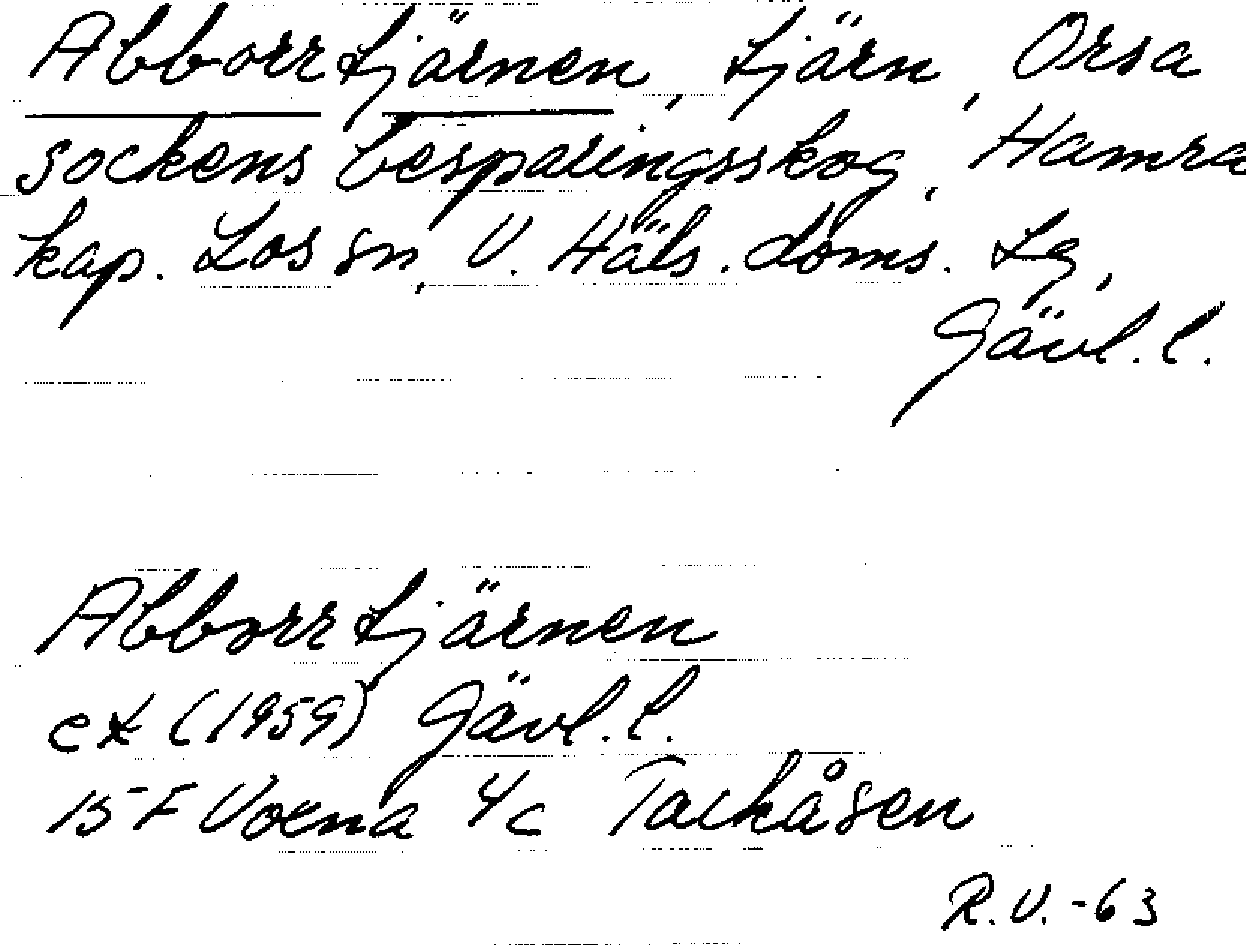 Abborrtjärnen, tjärn, Orsa
sockens besparingsskog, Hamra
kap. Los sn, V. Häls. doms. Lg,
Gävl. l.
Abborrtjärnen
ek (1959) Gävl. l.
15 F Voxna 4c Tackåsen
R.V. -63